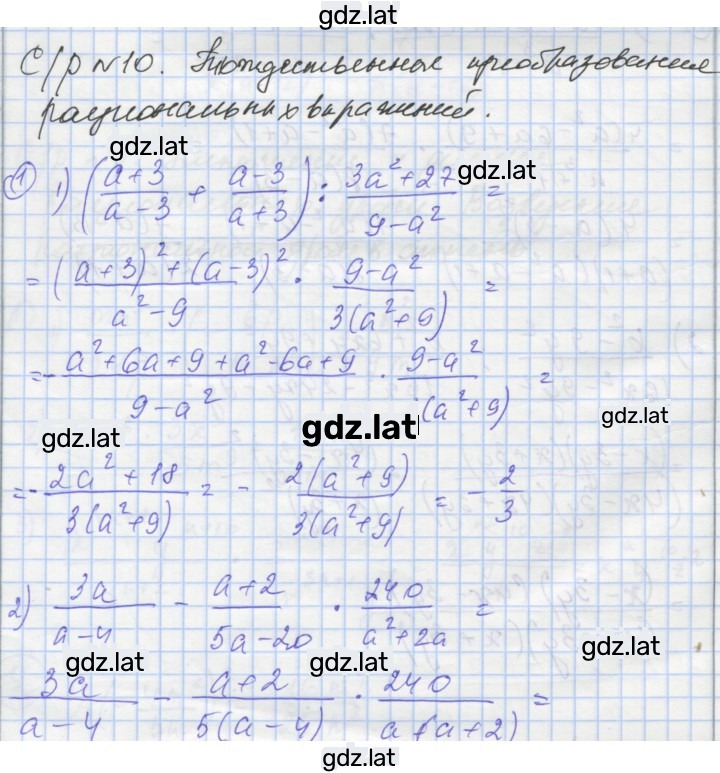 gdz.lat
С/р №10. Тождественные преобразования
рациональных выражений.
gdz.lat
gdz.lat
① 1) ((a+3)/(a-3) + (a-3)/(a+3)) : (3a²+27)/(9-a²) =
= ((a+3)²+(a-3)²)/(a²-9) · (9-a²)/(3(a²+9)) =
gdz.lat
gdz.lat
= - (a²+6a+9+a²-6a+9)/(9-a²) · (9-a²)/((a²+9)) =
gdz.lat
gdz.lat
gdz.lat
= - (2a²+18)/(3(a²+9)) = - (2(a²+9))/(3(a²+9)) = - 2/3
gdz.lat
gdz.lat
2) 3a/(a-4) - (a+2)/(5a-20) · 240/(a²+2a) =
gdz.lat
gdz.lat
gdz.lat
3a/(a-4) - (a+2)/(5(a-4)) · 240/(a(a+2)) =
gdz.lat